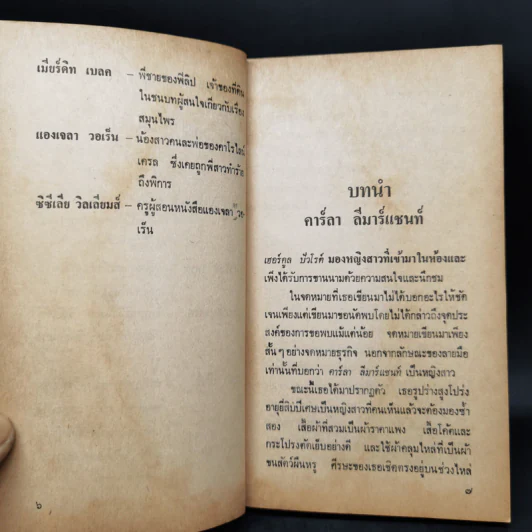 เมียร์ดิท เบลค – พี่ชายของฟิลิป เจ้าของที่ดิน
ในชนบทผู้สนใจเกี่ยวกับเรื่อง
สมุนไพร
แองเจลา วอเร็น – น้องสาวคนละพ่อของคาโรไลน์
เครล ซึ่งเคยถูกพี่สาวทำร้าย
ถึงพิการ
ซิซีเลีย วิลเลียมส์ – ครูผู้สอนหนังสือแองเจลา วอ
เร็น
๖
บทนำ
คาร์ลา ลีมาร์แชนท์
เฮอร์คูล ปัวโรต์ มองหญิงสาวที่เข้ามาในห้องและ
เพิ่งได้รับการขานนามด้วยความสนใจและนึกชม
ในจดหมายที่เธอเขียนมาไม่ได้บอกอะไรให้ชัด
เจนเพียงแต่เขียนมาขอนัดพบโดยไม่ได้กล่าวถึงจุดประ
สงค์ของการขอพบแม้แต่น้อย จดหมายเขียนมาเพียง
สั้นๆ อย่างจดหมายธุรกิจ นอกจากลักษณะของลายมือ
เท่านั้นที่บอกว่า คาร์ลา ลีมาร์แชนท์ เป็นหญิงสาว
ขณะนี้เธอได้มาปรากฏตัว เธอรูปร่างสูงโปร่ง
อายุยี่สิบปีเศษเป็นหญิงสาวที่คนเห็นแล้วจะต้องมองซ้ำ
สอง เสื้อผ้าที่สวมเป็นผ้าราคาแพง เสื้อโค้ตและ
กระโปรงตัดเย็บอย่างดี และใช้ผ้าคลุมไหล่ที่เป็นผ้า
ขนสัตว์ผืนหรู ศีรษะของเธอเชิดตรงอยู่บนช่วงไหล่
๗